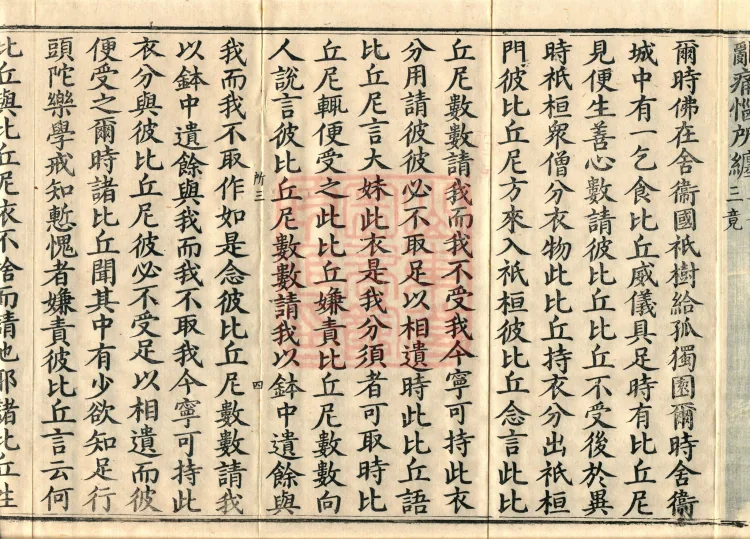 亂痛惱所纏三竟
爾時佛在舍衞國祇樹給孤獨園爾時舍衞
城中有一乞食比丘威儀具足時有比丘尼
見便生善心數請彼比丘比丘不受後於異
時祇桓衆僧分衣物此比丘持衣分出祇桓
門彼比丘尼方來入祇桓彼比丘念言此比
丘尼數數請我而我不受我今寧可持此衣
分用請彼彼必不取足以相遺時此比丘語
比丘尼言大妹此衣是我分須者可取時比
丘尼輒便受之此比丘嫌責比丘尼數數向
人說言彼比丘尼數數請我以鉢中遺餘與
所三 四
我而我不取作如是念彼比丘尼數數請我
以鉢中遺餘與我而我不取我今寧可持此
衣分與彼比丘尼彼必不受足以相遺而彼
便受之爾時諸比丘聞其中有少欲知足行
頭陀樂學戒知慙愧者嫌責彼比丘言云何
比丘與比丘尼衣不捨而請也耶諸比丘往